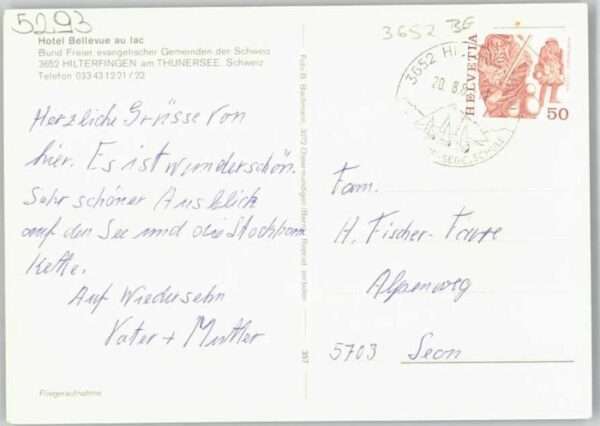 5293
3652 BE
Hotel Bellevue au lac
Bund Freier evangelischer Gemeinden der Schweiz
3652 HILTERFINGEN am THUNERSEE, Schweiz
Telefon 033 43 12 21 / 22
Herzliche Grüsse von
hier. Es ist wunderschön.
Sehr schöner Ausblick
auf den See und die Stockhorn
Kette.
Auf Wiedersehn
Vater + Mutter
Fliegeraufnahme
3072 Ostermundigen (Bern)
357
3652 HI
20. 8. 8
HELVETIA
50
Fam.
H. Fischer-Favre
Alpenweg
5703 Seon